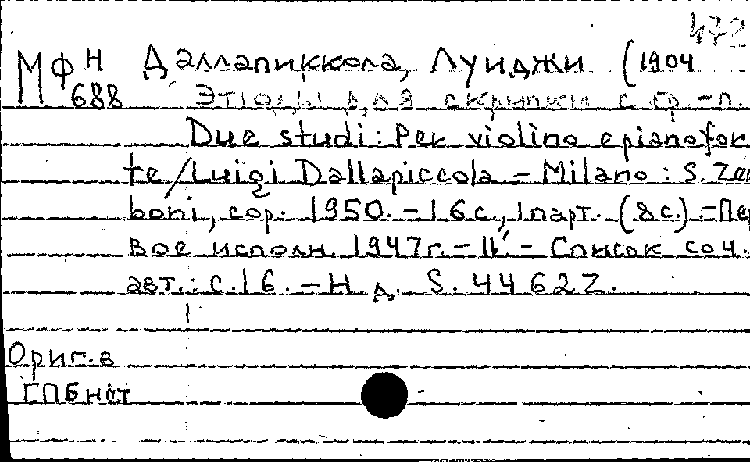 472
МФ Н Даллапиккола, Луиджи (1904
688 Этюды для скрипки с ф.-п.
Due studi: Per violino e pianofor
te/Luigi Dallapiccola – Milano: S. Zer
boni, cop. 1950. – 16 с., 1 парт. (8 с.) – Пер
вое исполн. 1947 г. – 11' – Список соч.
авт.: с. 16. – Н. д. S. 4462 Z.
Ориг. в
ГПБ нот